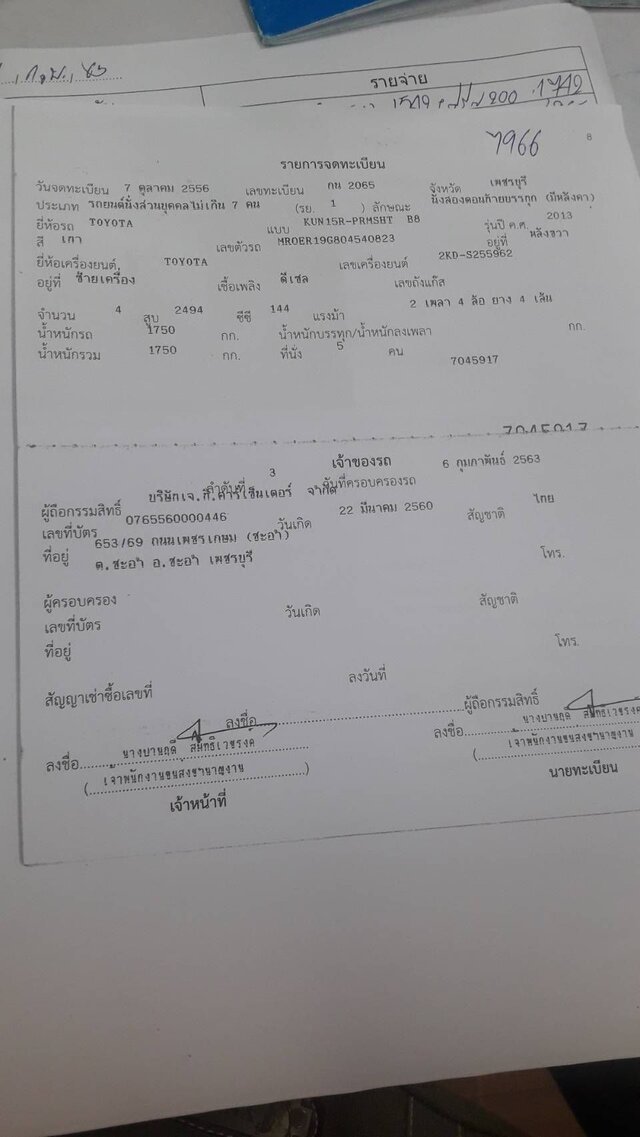 รายจ่าย
1742
7966
8
รายการจดทะเบียน
วันจดทะเบียน 7 ตุลาคม 2556 เลขทะเบียน กน 2065 จังหวัด เพชรบุรี
ประเภท รถยนต์นั่งส่วนบุคคลไม่เกิน 7 คน (รย. 1 ) ลักษณะ นั่งสองตอนท้ายบรรทุก (มีหลังคา)
ยี่ห้อรถ TOYOTA แบบ KUN15R-PRMSHT B8 รุ่นปี ค.ศ. 2013
สี เทา เลขตัวรถ MROER19G804540823 อยู่ที่ หลังขวา
ยี่ห้อเครื่องยนต์ TOYOTA เลขเครื่องยนต์ 2KD-S255962
อยู่ที่ ซ้ายเครื่อง เชื้อเพลิง ดีเซล เลขถังแก๊ส
จำนวน 4 สูบ 2494 ซีซี 144 แรงม้า 2 เพลา 4 ล้อ ยาง 4 เส้น
น้ำหนักรถ 1750 กก. น้ำหนักบรรทุก/น้ำหนักลงเพลา กก.
น้ำหนักรวม 1750 กก. ที่นั่ง 5 คน
7045917
7045917
เจ้าของรถ
ลำดับที่ 3 วันที่ครอบครองรถ 6 กุมภาพันธ์ 2563
ผู้ถือกรรมสิทธิ์ บริษัทเจ.ที.คาร์เซ็นเตอร์ จำกัด
เลขที่บัตร 0765560000446 วันเกิด 22 มีนาคม 2560 สัญชาติ ไทย
ที่อยู่ 653/69 ถนนเพชรเกษม (ชะอำ) โทร.
ต.ชะอำ อ.ชะอำ เพชรบุรี
ผู้ครอบครอง
เลขที่บัตร วันเกิด สัญชาติ
ที่อยู่ โทร.
สัญญาเช่าซื้อเลขที่ ลงวันที่
ลงชื่อ ผู้ถือกรรมสิทธิ์
ลงชื่อ ลงชื่อ
(เจ้าพนักงานขนส่งชำนาญงาน) (เจ้าพนักงานขนส่งชำนาญงาน
เจ้าหน้าที่ นายทะเบียน